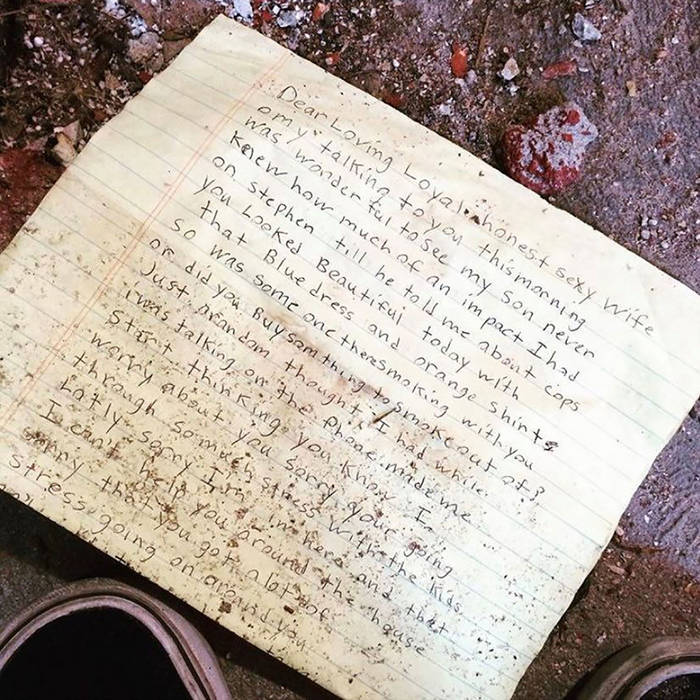 Dear Loving Loyal honest sexy wife
omy talking to you thismorning
was wonderful to see my son never
knew how much of an impact I had
on stephen till he told me about cops
you Looked Beautiful today with
that Blue dress and orange shirt
so was some one there smoking with you
or did you Buy som thing to smoke out of?
Just arandom thought I had while
i was talking on the phone made me
start thinking you know I
worry about you sorry your going
through somuch stress with the kids
Latly sorry I'm in here and that
I can't help you around the house
sorry that you got alot of
stress going on around you